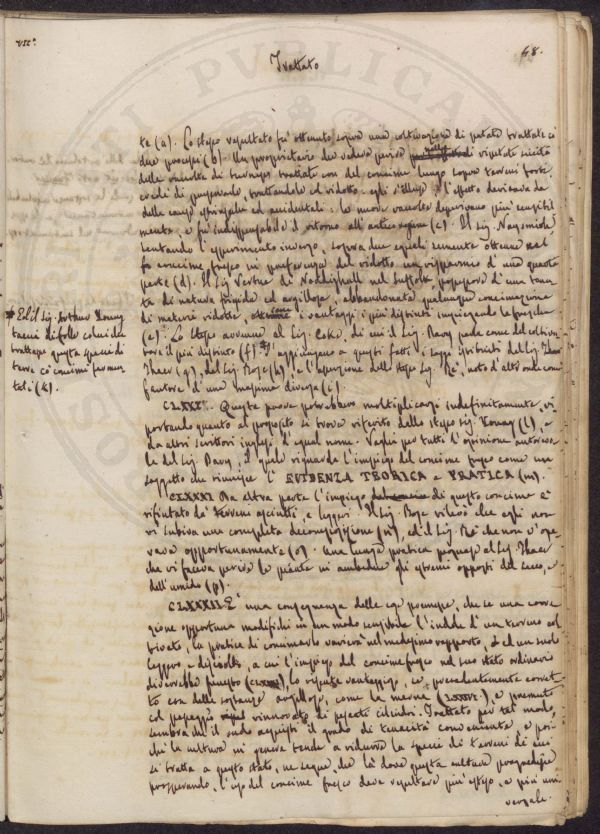 VII.°
68.
Trattato
te (a). Lo stesso resultato fu ottenuto sopra una coltivazione di patate trattate coi
due processi (b). Un proprietario che vedeva perire di ripetute siccità
delle raccolte di turneps trattate con del concime lungo sopra terreni forti,
credè di prepararlo, trattandolo col ridotto: egli s'illuse. L'effetto derivava da
delle cause estrinsiche ed accidentali: le nuove raccolte deperivano più sensibil
mente, e fu indispensabile il ritorno all'antico regime (c). Il Sig. Naysmith
tentando l'esperimento inverso, sopra due eguali semente ottenne nel
fo concime fresco in preferenza del ridotto un risparmio d'una quarta
parte (d). Il Sig. Vertue di nel Suffolk, possessore d'una tenu
ta di natura frigida ed argillosa, abbandonata qualunque concimazione
di materie ridotte, ottiene i vantaggi i più distinti impiegando le fresche
(e). Lo stesso avvenne al Sig. Coke, di cui il Sig. Davy parla come del coltiva
tore il più distinto (f). Si aggiungano a questi fatti i saggi istituiti del Sig. Thaer
Thaer (g), del Sig. Bosc (h), e l'asserzione dello stesso Sig. Re, noto d'altronde come
fautore d'una massima diversa (i).
# Ed il Sig. Arthur Young
tacciò di folle colui che
trattasse questa specie di
terre co' concimi fermen
tati (k).
CLXXX. Queste prove potrebbero moltiplicarsi indefinitamente, ri
portando quanto al proposito si trova riferito dallo stesso Sig. Young (l), e
da altri scrittori inglesi d'egual nome. Vaglia per tutti l'opinione autorevo
le del Sig. Davy, il quale riguarda l'impiego del concime fresco come un
soggetto che riunisce l'EVIDENZA TEORICA e PRATICA (m).
CLXXXI Da altra parte l'impiego di questo concime è
rifiutato da' terreni asciutti, e leggeri. Il Sig. Bosc rilevò che egli non
vi subiva una completa decomposizione (n), ed il Sig. Re che non v'ope
rava opportunamente (o). Una lunga pratica persuase al Sig. Thaer
che vi faceva perire le piante in ambedue gli estremi opposti del secco, e
dell'umido (p).
CLXXXII È una conseguenza delle cose premesse, che se una corre
zione opportuna modifichi in un modo sensibile l'indole d'un terreno col
tivato, la pratica di concimarlo varierà nel medesimo rapporto, ed un suolo
leggero e disciolto, a cui l'impiego del concime fresco nel suo stato ordinario
diverrebbe funesto (CLXXXI), lo risente vantaggioso, se precedentemente corret
to con delle sostanze argillose, come la marna (LXXXVI.) e premuto
col passaggio rinnovato di pesanti cilindri. Trattato per tal modo,
sembra che il suolo acquisti il grado di tenacità conveniente, e poi
chè la cultura in genere tende a ridurre le specie di terreni di cui
si tratta a questo stato, ne segue, che là dove questa cultura progredisse
prosperando, l'uso del concime fresco deve resultare più esteso, e più uni
versale.